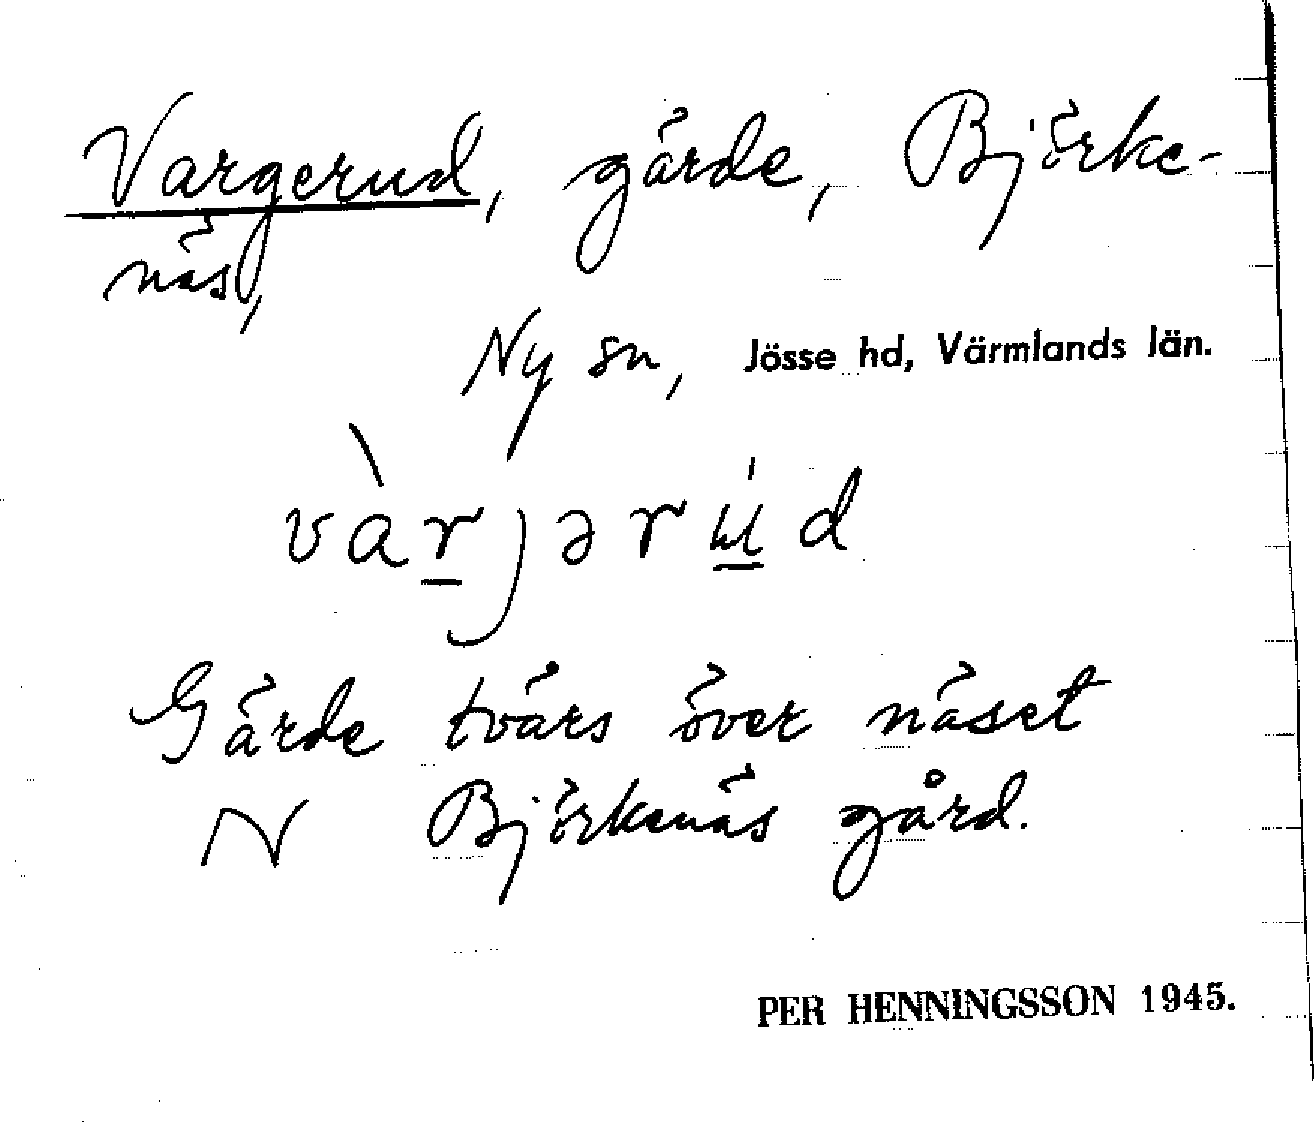 Vargerud, gärde, Björke-
näs,
Ny sn, Jösse hd, Värmlands län.
vàr̲jərú̲d
Gärde tvärs över näset
N Björkenäs gård.
PER HENNINGSSON 1945.